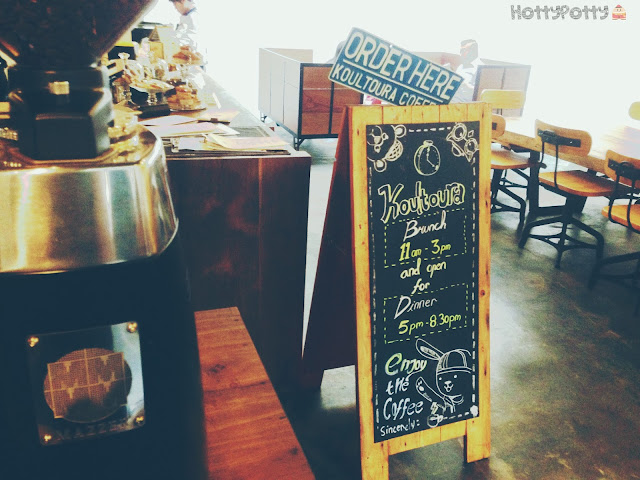 HottyPotty
ORDER HERE
KOULTOURA COFFEE
Koultoura
Brunch
11am - 3pm
and open
for
Dinner
5pm-8.30pm
enjoy
the
Coffee
Sincerely: